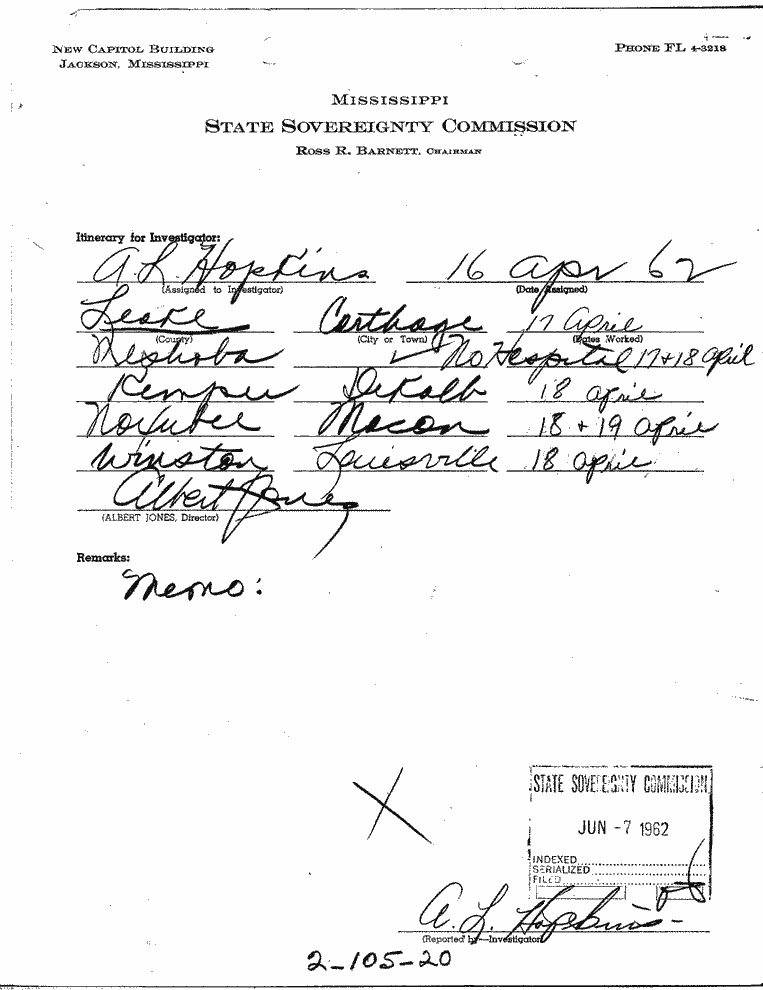 NEW CAPITOL BUILDING
JACKSON, MISSISSIPPI
PHONE FL 4-3218
MISSISSIPPI
STATE SOVEREIGNTY COMMISSION
ROSS R. BARNETT, CHAIRMAN
Itinerary for Investigator:
A. L. Hopkins 16 Apr 62
(Assigned to Investigator) (Date Assigned)
Leake Carthage 17 April
(County) (City or Town) (Dates Worked)
Neshoba ✓ No Hospital 17+18 April
Kemper DeKalb 18 April
Noxubee Macon 18 + 19 April
Winston Louisville 18 April
Albert Jones
(ALBERT JONES, Director)
Remarks:
Memo:
STATE SOVEREIGNTY COMMISSION
JUN -7 1962
INDEXED
SERIALIZED
FILED
A. L. Hopkins
(Reported by—Investigator)
2-105-20